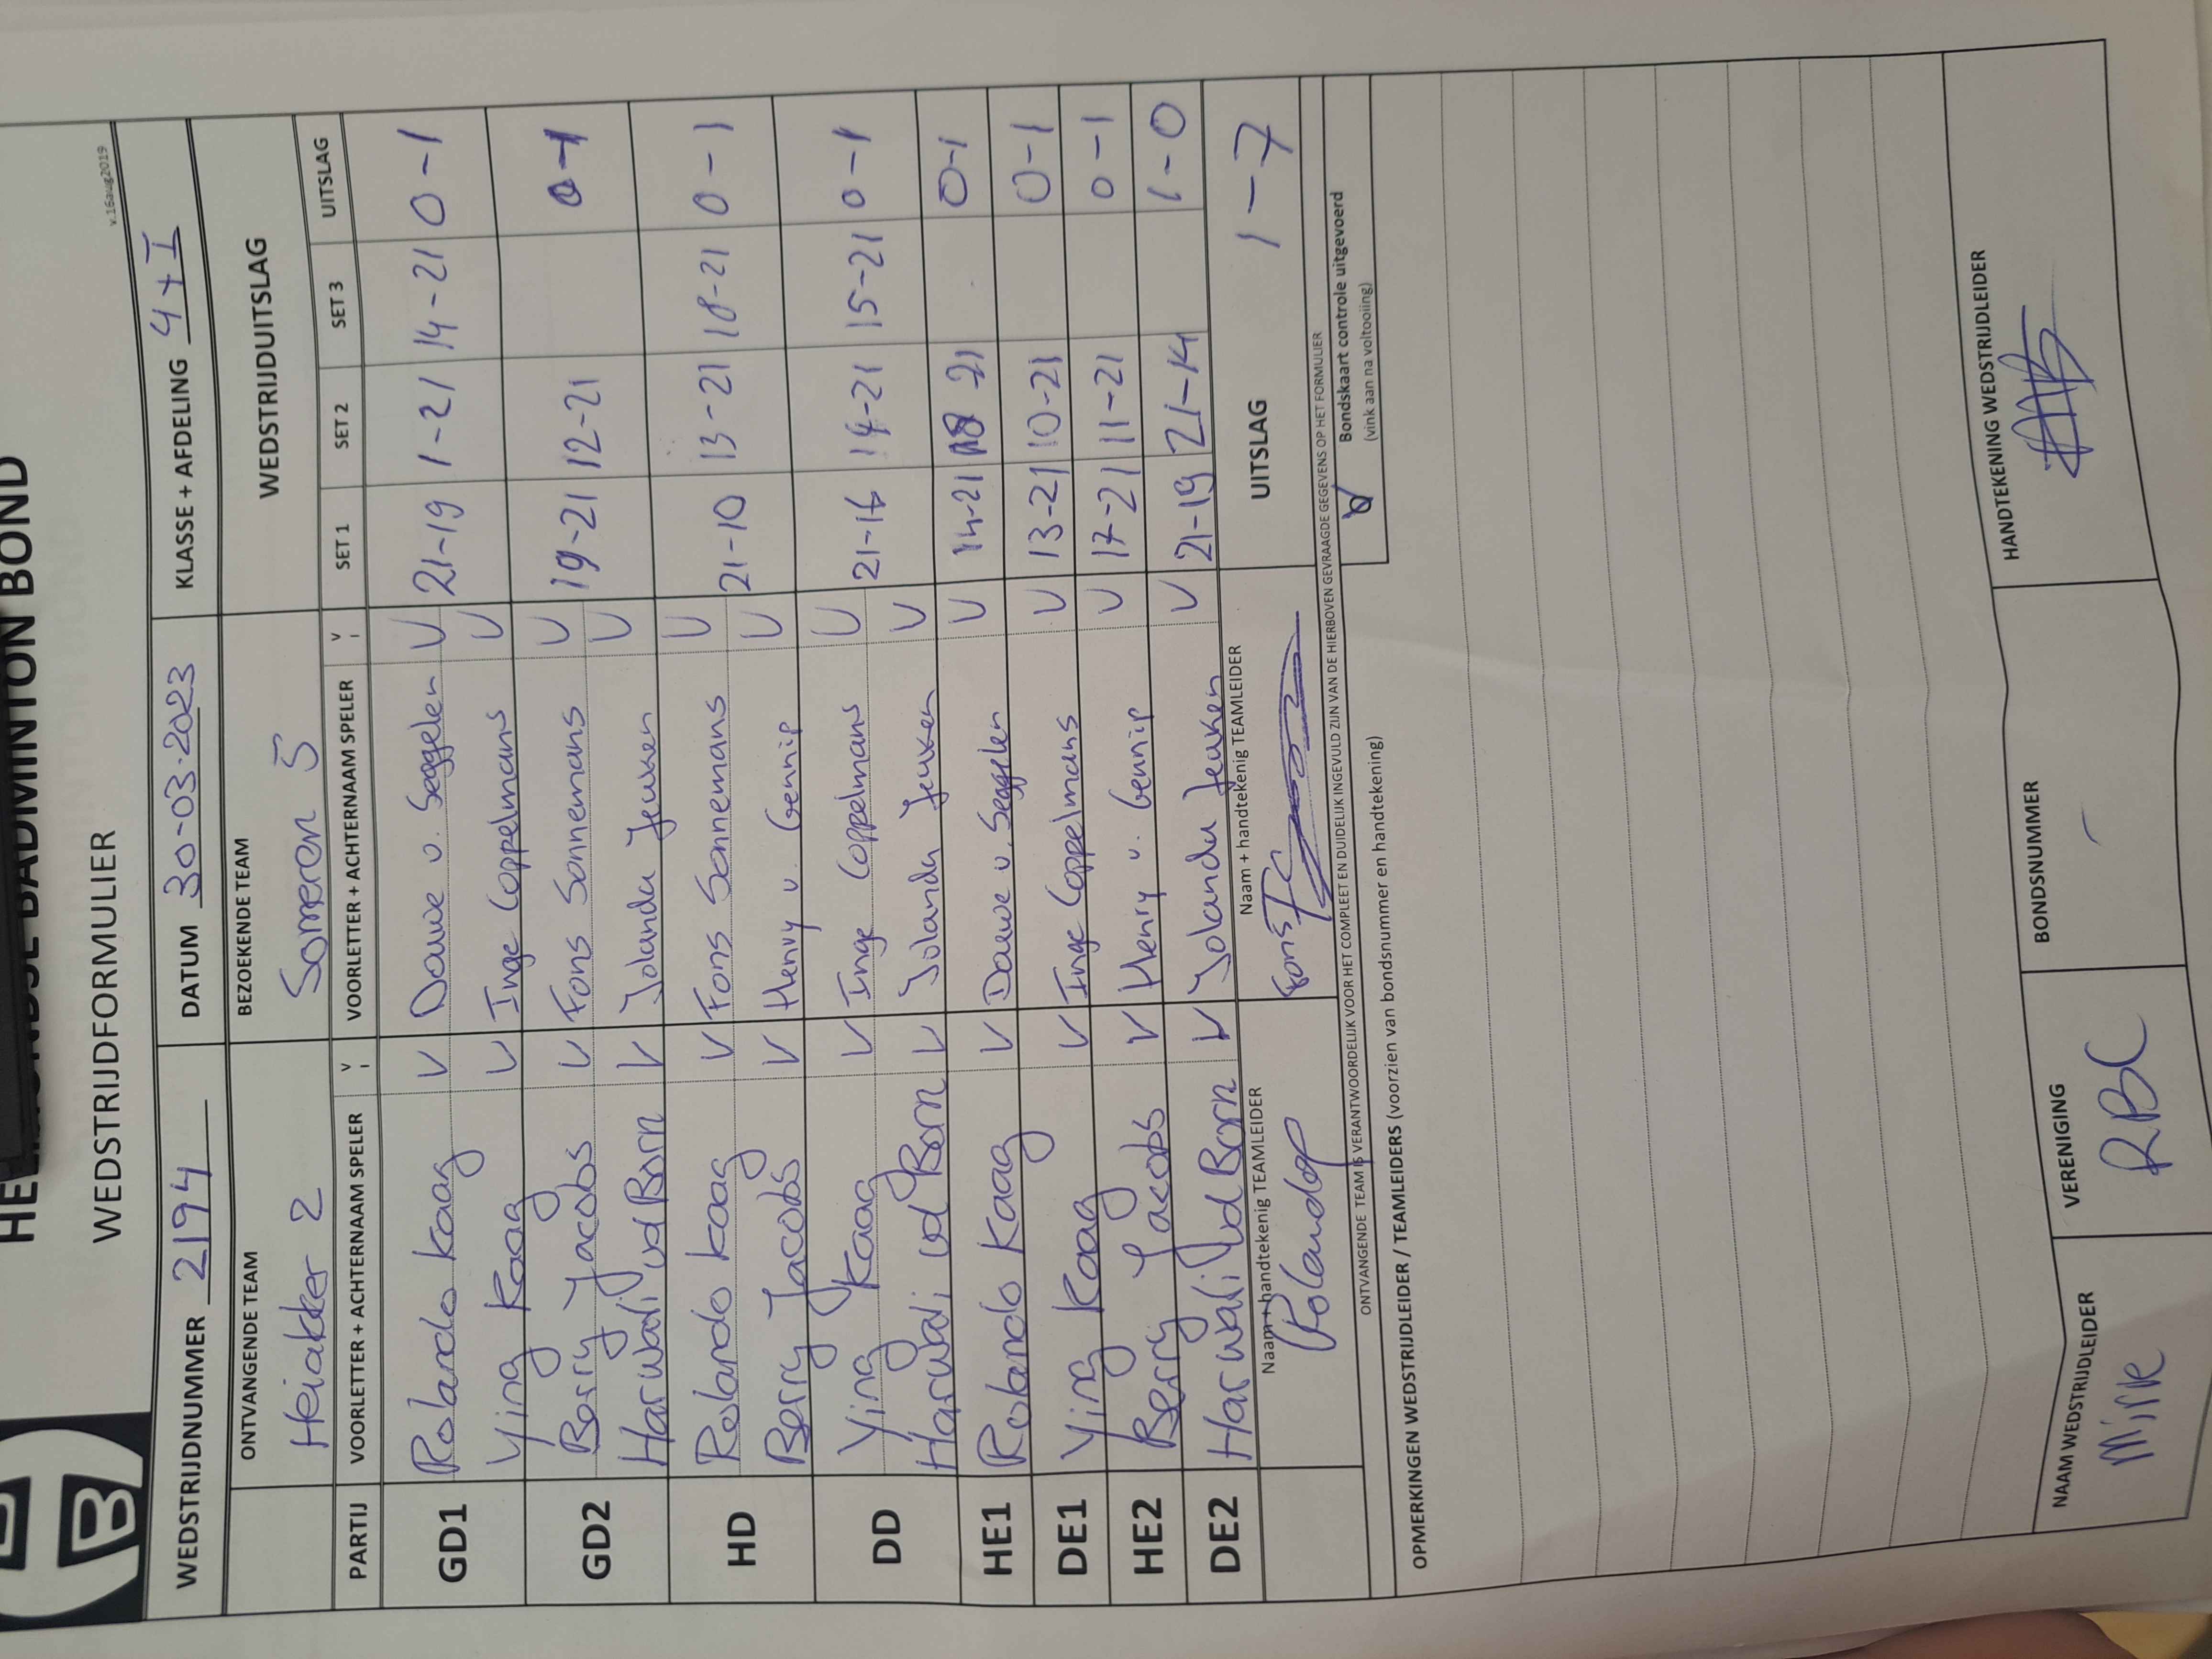 HELMONDSE BADMINTON BOND
WEDSTRIJDFORMULIER
v.16aug2019
WEDSTRIJDNUMMER 2194 DATUM 30-03-2023 KLASSE + AFDELING 4 + I
ONTVANGENDE TEAM BEZOEKENDE TEAM WEDSTRIJDUITSLAG
Heiakker 2 Someren 5
PARTIJ VOORLETTER + ACHTERNAAM SPELER V VOORLETTER + ACHTERNAAM SPELER V SET 1 SET 2 SET 3 UITSLAG
GD1 Rolando Kaag V Douwe v. Seggelen V 21-19 1-21 14-21 0-1
Ying Kaag V Inge Coppelmans V
GD2 Berry Jacobs V Fons Sonnemans V 19-21 12-21 0-1
Harwati vd Born V Jolanda Jeuken V
HD Rolando Kaag V Fons Sonnemans V 21-10 13-21 18-21 0-1
Berry Jacobs V Henry v. Gennip V
DD Ying Kaag V Inge Coppelmans V 21-16 14-21 15-21 0-1
Harwati vd Born V Jolanda Jeuken V
HE1 Rolando Kaag V Douwe v. Seggelen V 14-21 18 21 0-1
DE1 Ying Kaag V Inge Coppelmans V 13-21 10-21 0-1
HE2 Berry Jacobs V Henry v. Gennip V 17-21 11-21 0-1
DE2 Harwati vd Born V Jolanda Jeuken V 21-19 21-14 1-0
Naam + handtekenig TEAMLEIDER Naam + handtekenig TEAMLEIDER UITSLAG 1-7
Rolando Fons
ONTVANGENDE TEAM IS VERANTWOORDELIJK VOOR HET COMPLEET EN DUIDELIJK INGEVULD ZIJN VAN DE HIERBOVEN GEVRAAGDE GEGEVENS OP HET FORMULIER
Bondskaart controle uitgevoerd
(vink aan na voltooiing)
OPMERKINGEN WEDSTRIJDLEIDER / TEAMLEIDERS (voorzien van bondsnummer en handtekening)
NAAM WEDSTRIJDLEIDER VERENIGING BONDSNUMMER HANDTEKENING WEDSTRIJDLEIDER
RBC -